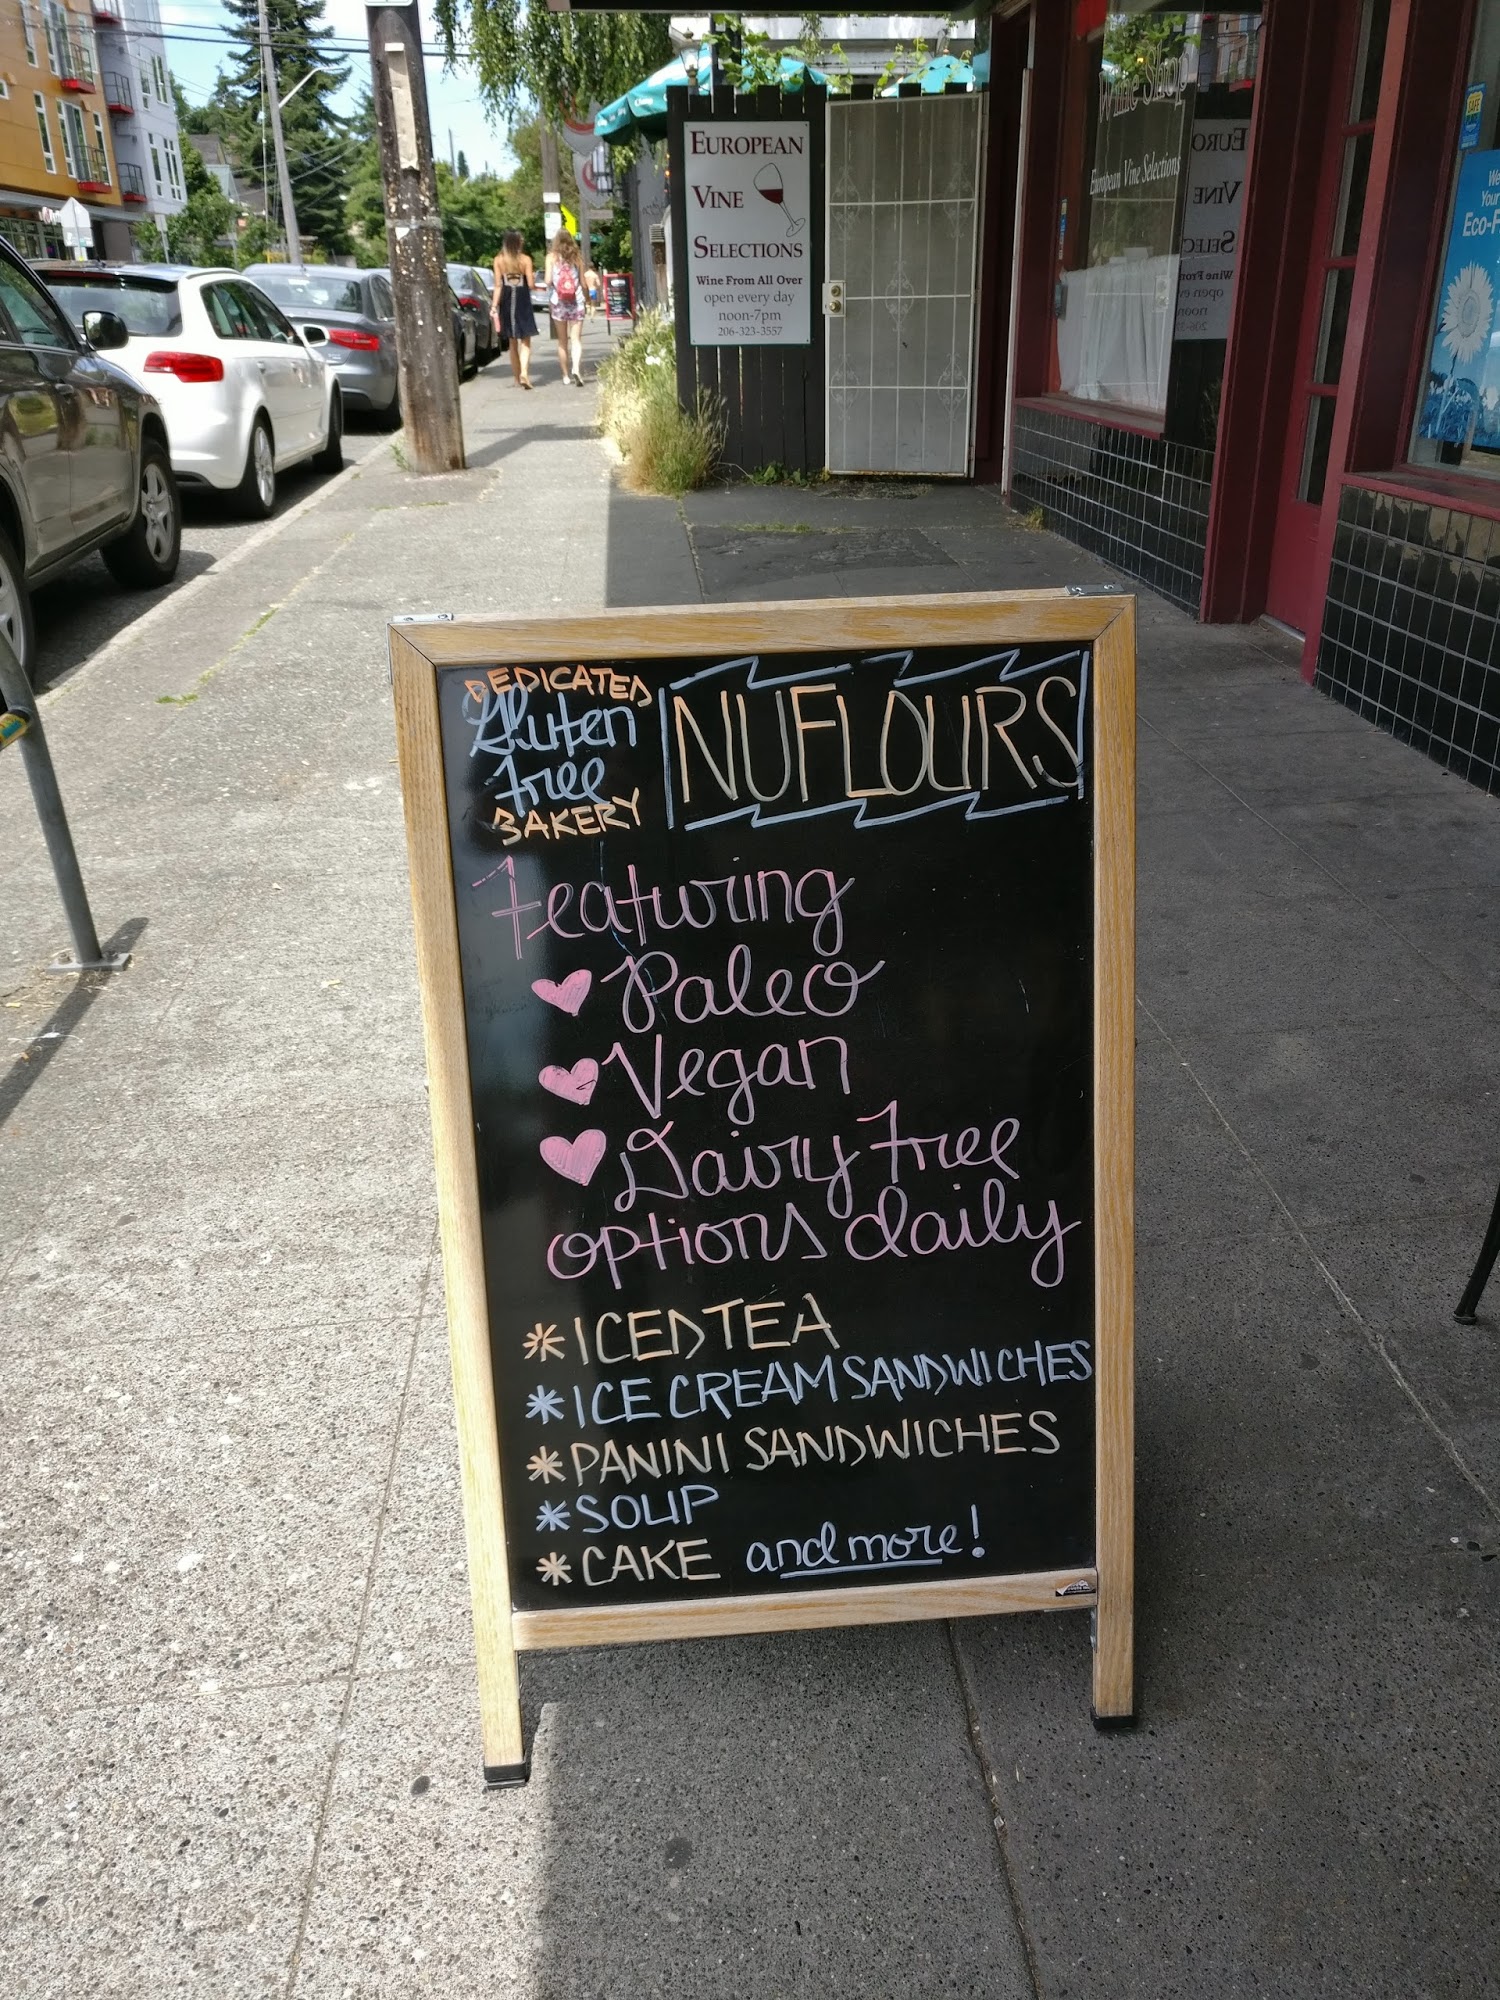 EUROPEAN
VINE
SELECTIONS
Wine From All Over
open every day
noon-7pm
206-323-3557
Wine Shop
European Vine Selections
DEDICATED
Gluten
free
BAKERY
NUFLOURS
Featuring
Paleo
Vegan
Dairy Free
options daily
*ICED TEA
*ICE CREAM SANDWICHES
*PANINI SANDWICHES
*SOUP
*CAKE and more!